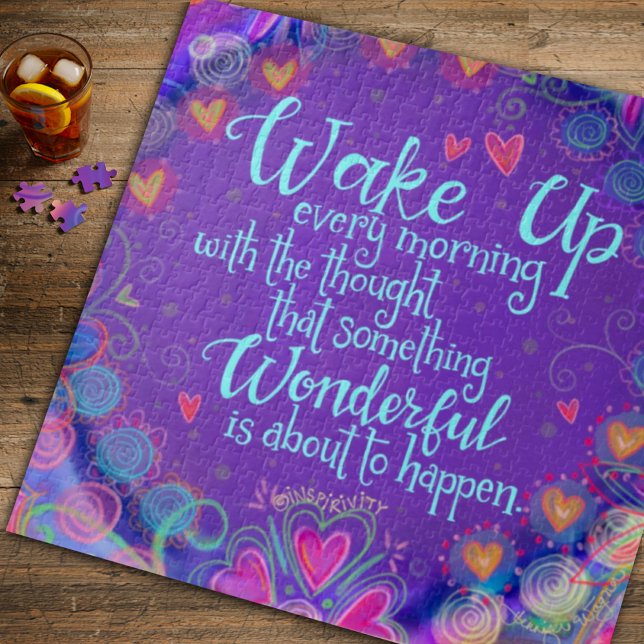 Wake Up
every morning
with the thought
that something
Wonderful
is about to happen.
©INSPIRIVITY